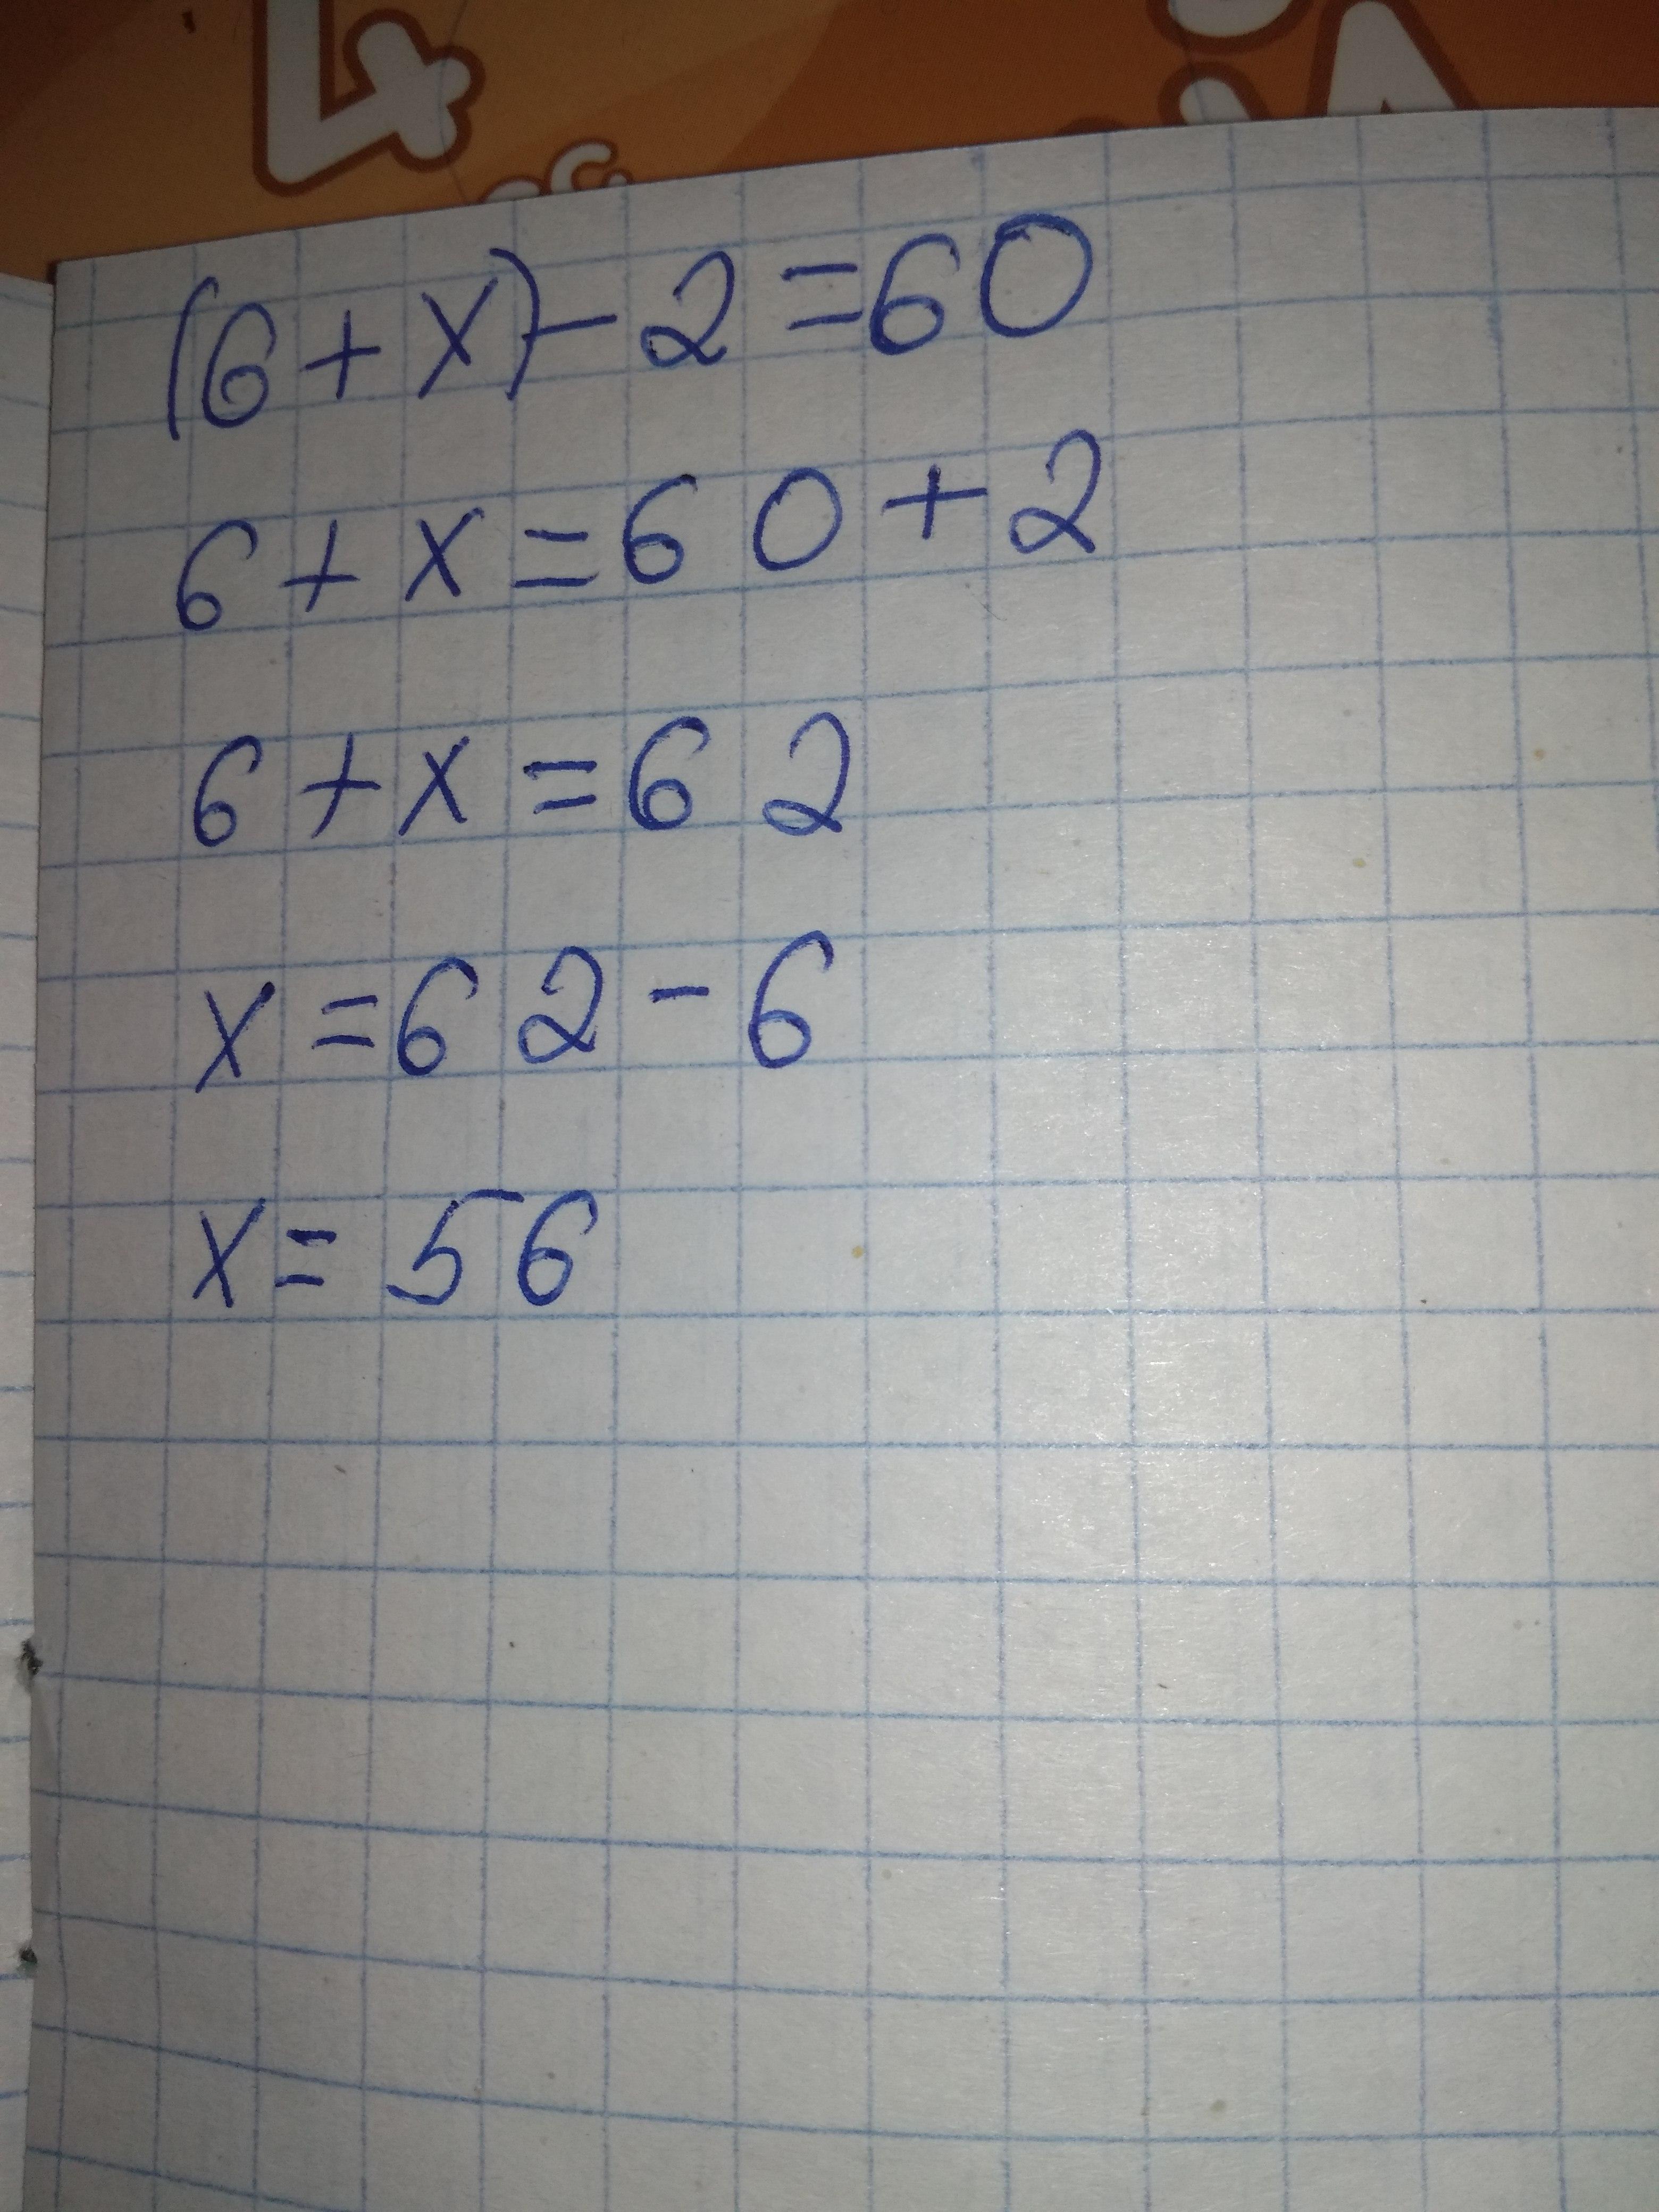 (6+x)-2=60
6+x=60+2
6+x=62
x=62-6
x=56